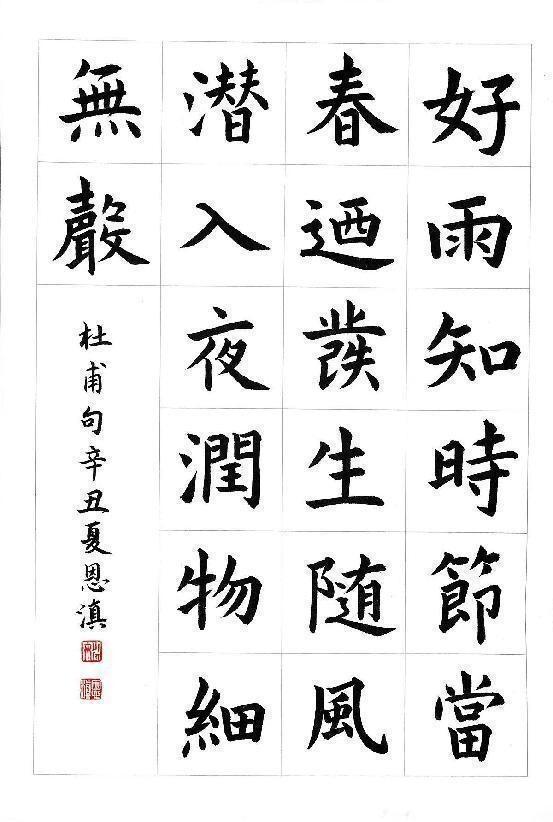 好雨知時節當
春迺發生随風
潜入夜潤物細
無聲
杜甫句辛丑夏恩滇